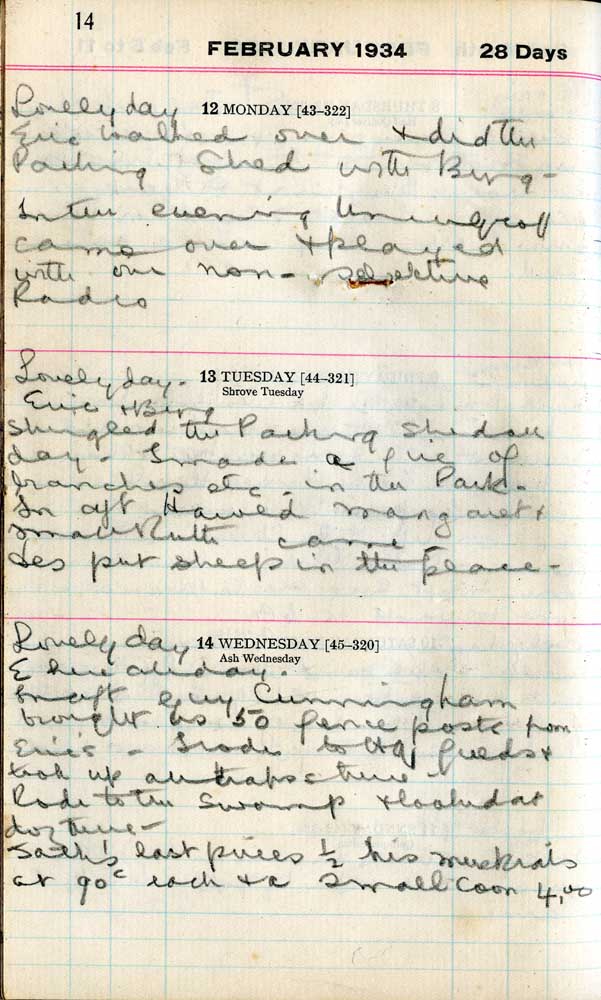 14
FEBRUARY 1934 28 Days
Lovely day 12 MONDAY [43–322]
Eric walked over & did the
Packing Shed with Byng –
In the evening
came over & played
with our non-selective
Radio
Lovely day. 13 TUESDAY [44–321]
Shrove Tuesday
Eric & Byng
Shingled the Packing Shed all
day – I made a fire of
branches etc. in the Park.
In aft Hawed Margaret &
small Ruth came –
Les put sheep in the place –
Lovely day 14 WEDNESDAY [45–320]
Ash Wednesday
E here all day.
In aft Guy Cunningham
brought us 50 fence posts from
Eric's – I rode to fields &
took up all traps there –
Rode to the Swamp & looked at
doz there –
last prices ½ his muskrats
at 90c each & a small Coon 4,00